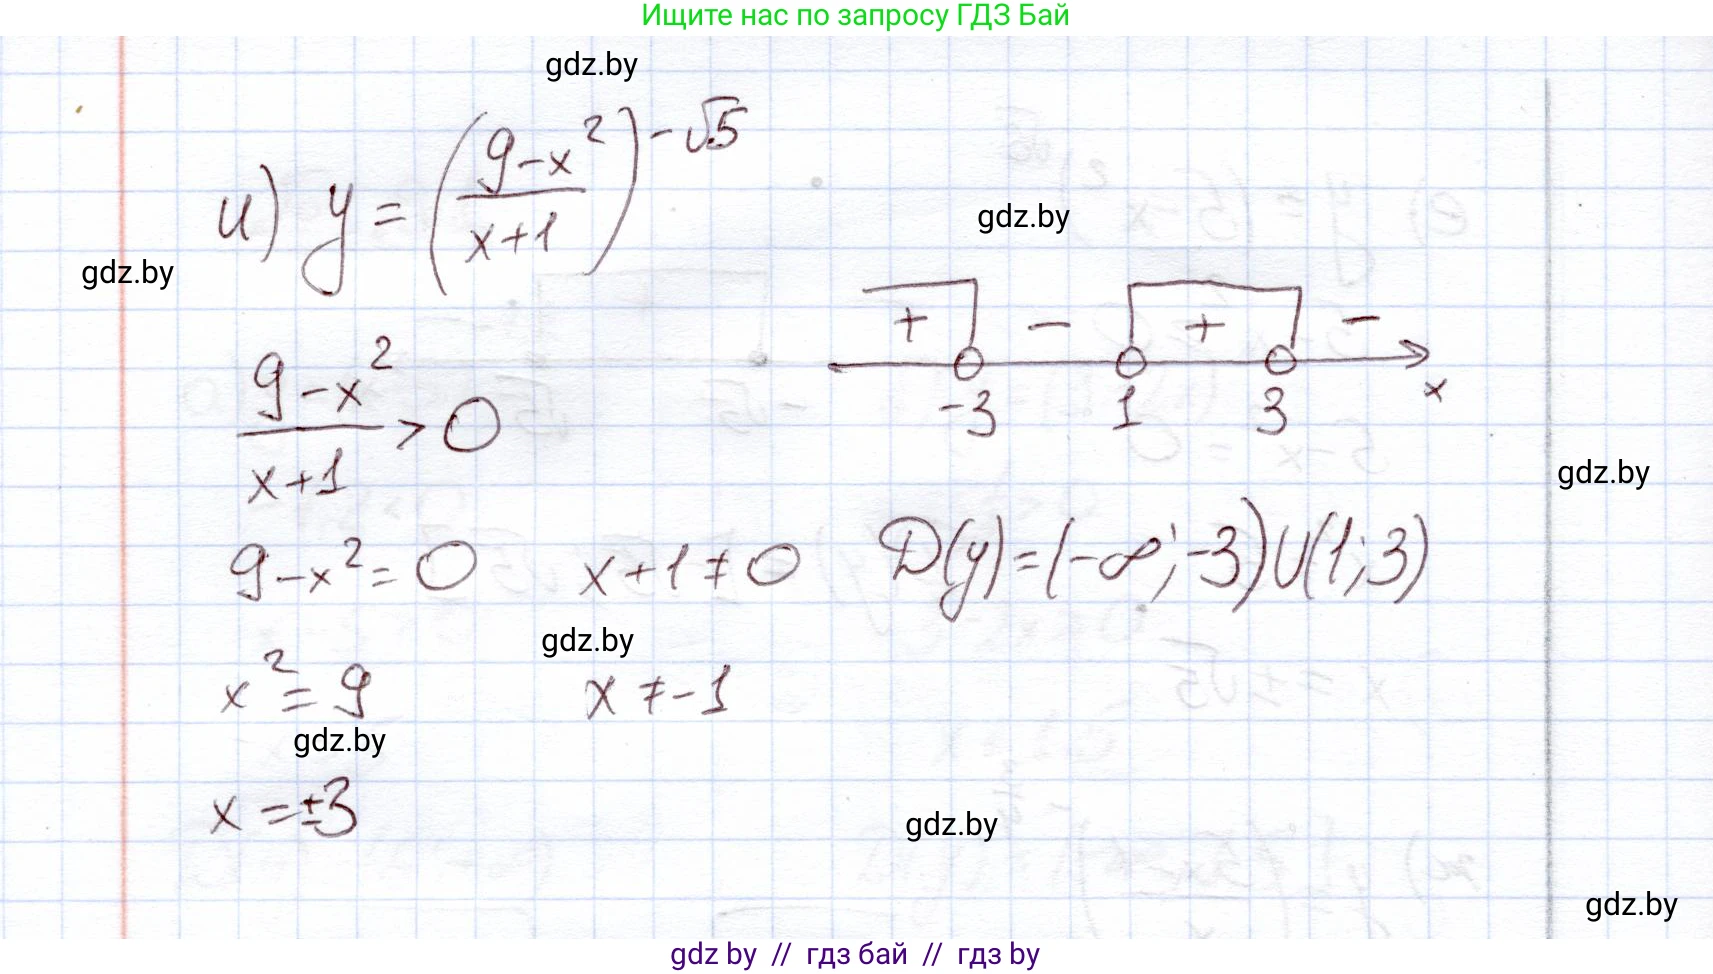 Ищите нас по запросу ГДЗ Бай
gdz.by
и) y = ((9-x²)/(x+1))^(-√5)
gdz.by
gdz.by
+ - + -
-3 1 3 x
(9-x²)/(x+1) > 0
gdz.by
9-x² = 0 x+1 ≠ 0 D(y) = (-∞; -3) U (1; 3)
gdz.by
x² = 9 x ≠ -1
gdz.by
x = ±3
gdz.by
gdz.by
gdz by // гдз бай // гдз by